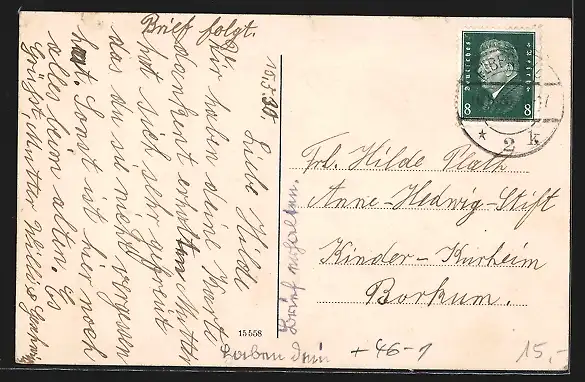 Brief folgt.
10.5.30.
Liebe Hilde
Wir haben deine Karte
dankent erhalten Mutter
hat sich sehr gefreut
das du sie nicht vergessen
hast. Sonst ist hier noch
alles beim alten. Es
Grüßt, Mutter Willi &
Brief erhalten.
haben dein
Deutsches Reich
8 8
* 2 k
Frl. Hilde Plath
Anne-Hedwig-Stift
Kinder-Kurheim
Borkum.
15558
+ 46-9
15,-